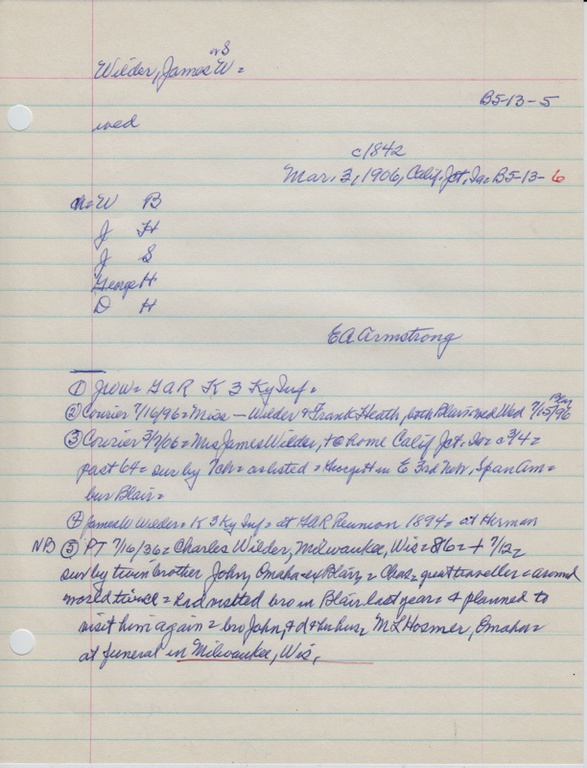 or S
Wilder, James W =
B5-13-5
wed
c1842
Mar. 3, 1906, Calif. Jct. Ia = B5-13-6
W B
J H
J S
George H
D H
E A Armstrong
① JWW = GAR K 3 Ky Inf =
② Courier 7/16/96 = Miss — Wilder & Frank Heath, both Blair = wed Wed 7/15/96 Blair
③ Courier 3/7/06 = Mrs James Wilder, + @ home Calif Jct. Ia = c 3/4 =
past 64 = sur by 7 ch = as listed = George H in E 3rd Neb, Span Am =
bur Blair =
④ James W Wilder = K 3 Ky Inf = at GAR Reunion 1894 = at Herman
NB ⑤ PT 7/16/36 = Charles Wilder, Milwaukee, Wis = 86 = + 7/12 =
sur by twin brother John, Omaha = ex Blair = Chas = great traveller = around
world twice = had visited bro in Blair last year & planned to
visit him again = bro John, & d & hus, M L Hosmer, Omaha =
at funeral in Milwaukee, Wis.